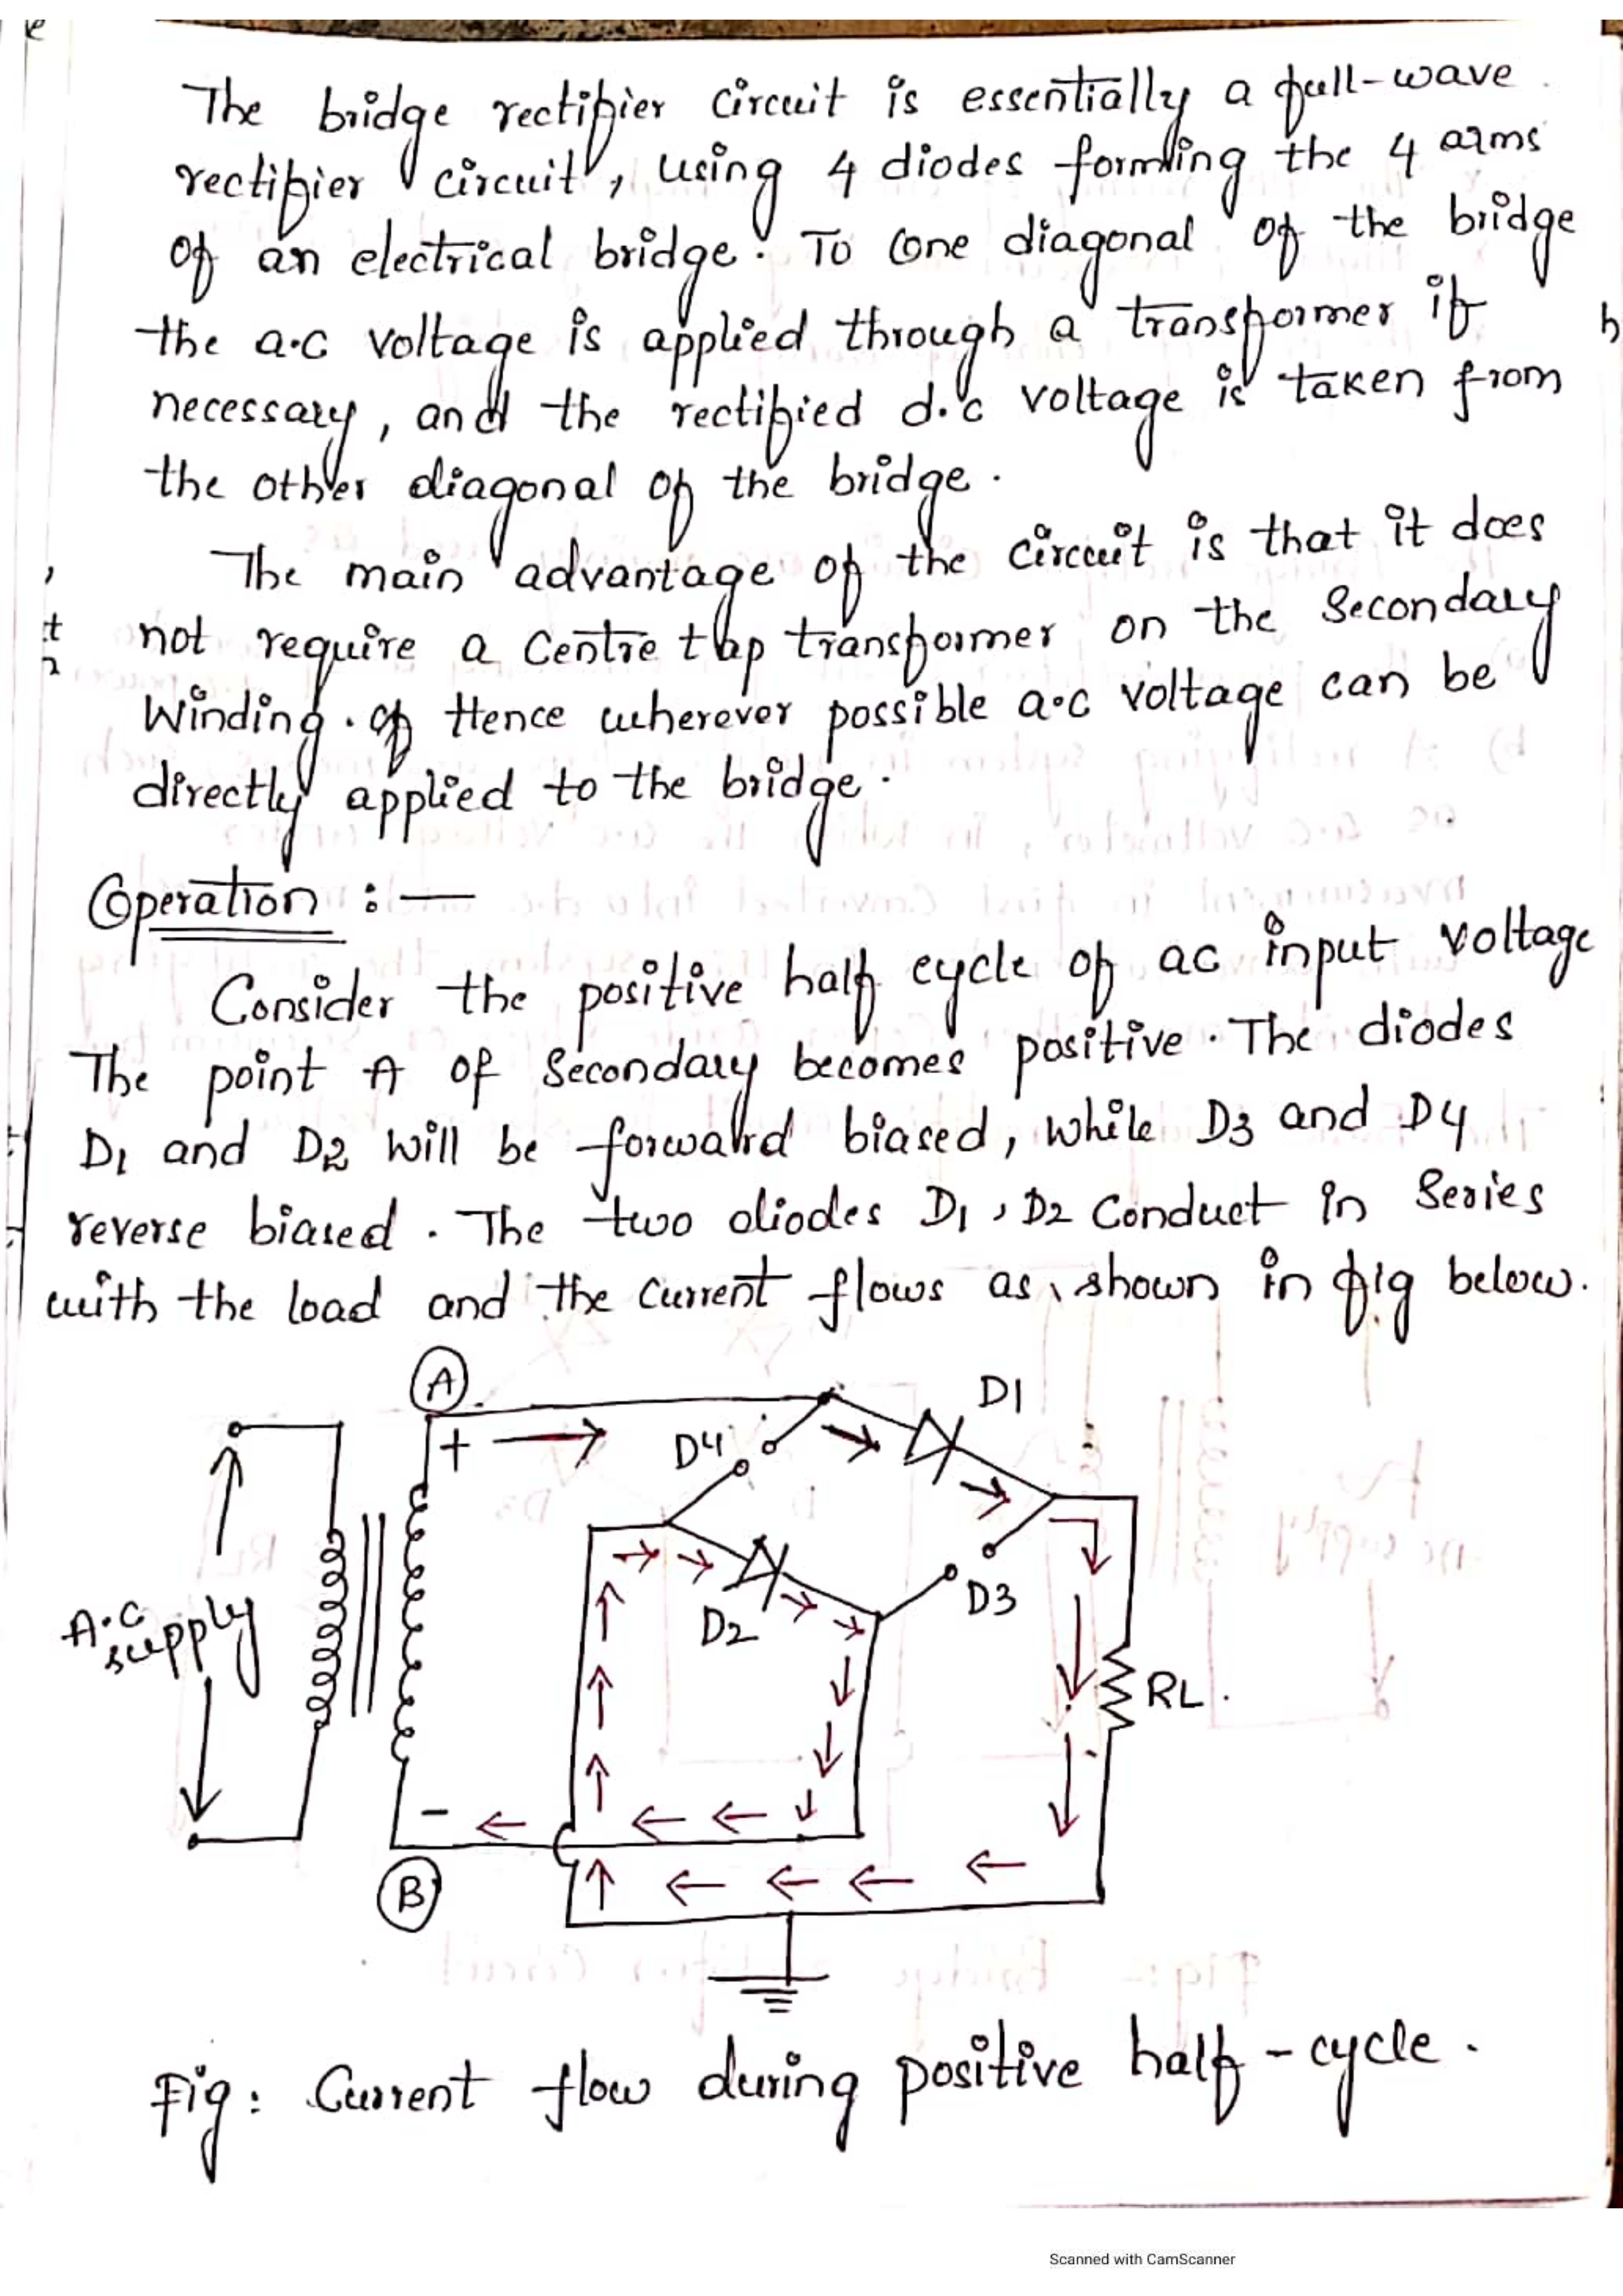 The bridge rectifier circuit is essentially a full-wave
rectifier circuit, using 4 diodes forming the 4 arms
of an electrical bridge. To one diagonal of the bridge
the a.c voltage is applied through a transformer if
necessary, and the rectified d.c voltage is taken from
the other diagonal of the bridge.
The main advantage of the circuit is that it does
not require a Centre tap transformer on the Secondary
Winding. of Hence wherever possible a.c voltage can be
directly applied to the bridge.
Operation :—
Consider the positive half cycle of ac input voltage
The point A of Secondary becomes positive. The diodes
D1 and D2 will be forward biased, while D3 and D4
reverse biased. The two diodes D1, D2 Conduct in Series
with the load and the current flows as shown in fig below.
A
D1
+
D4
D3
D2
A.C
supply
RL.
-
B
Fig: Current flow during positive half-cycle.
Scanned with CamScanner